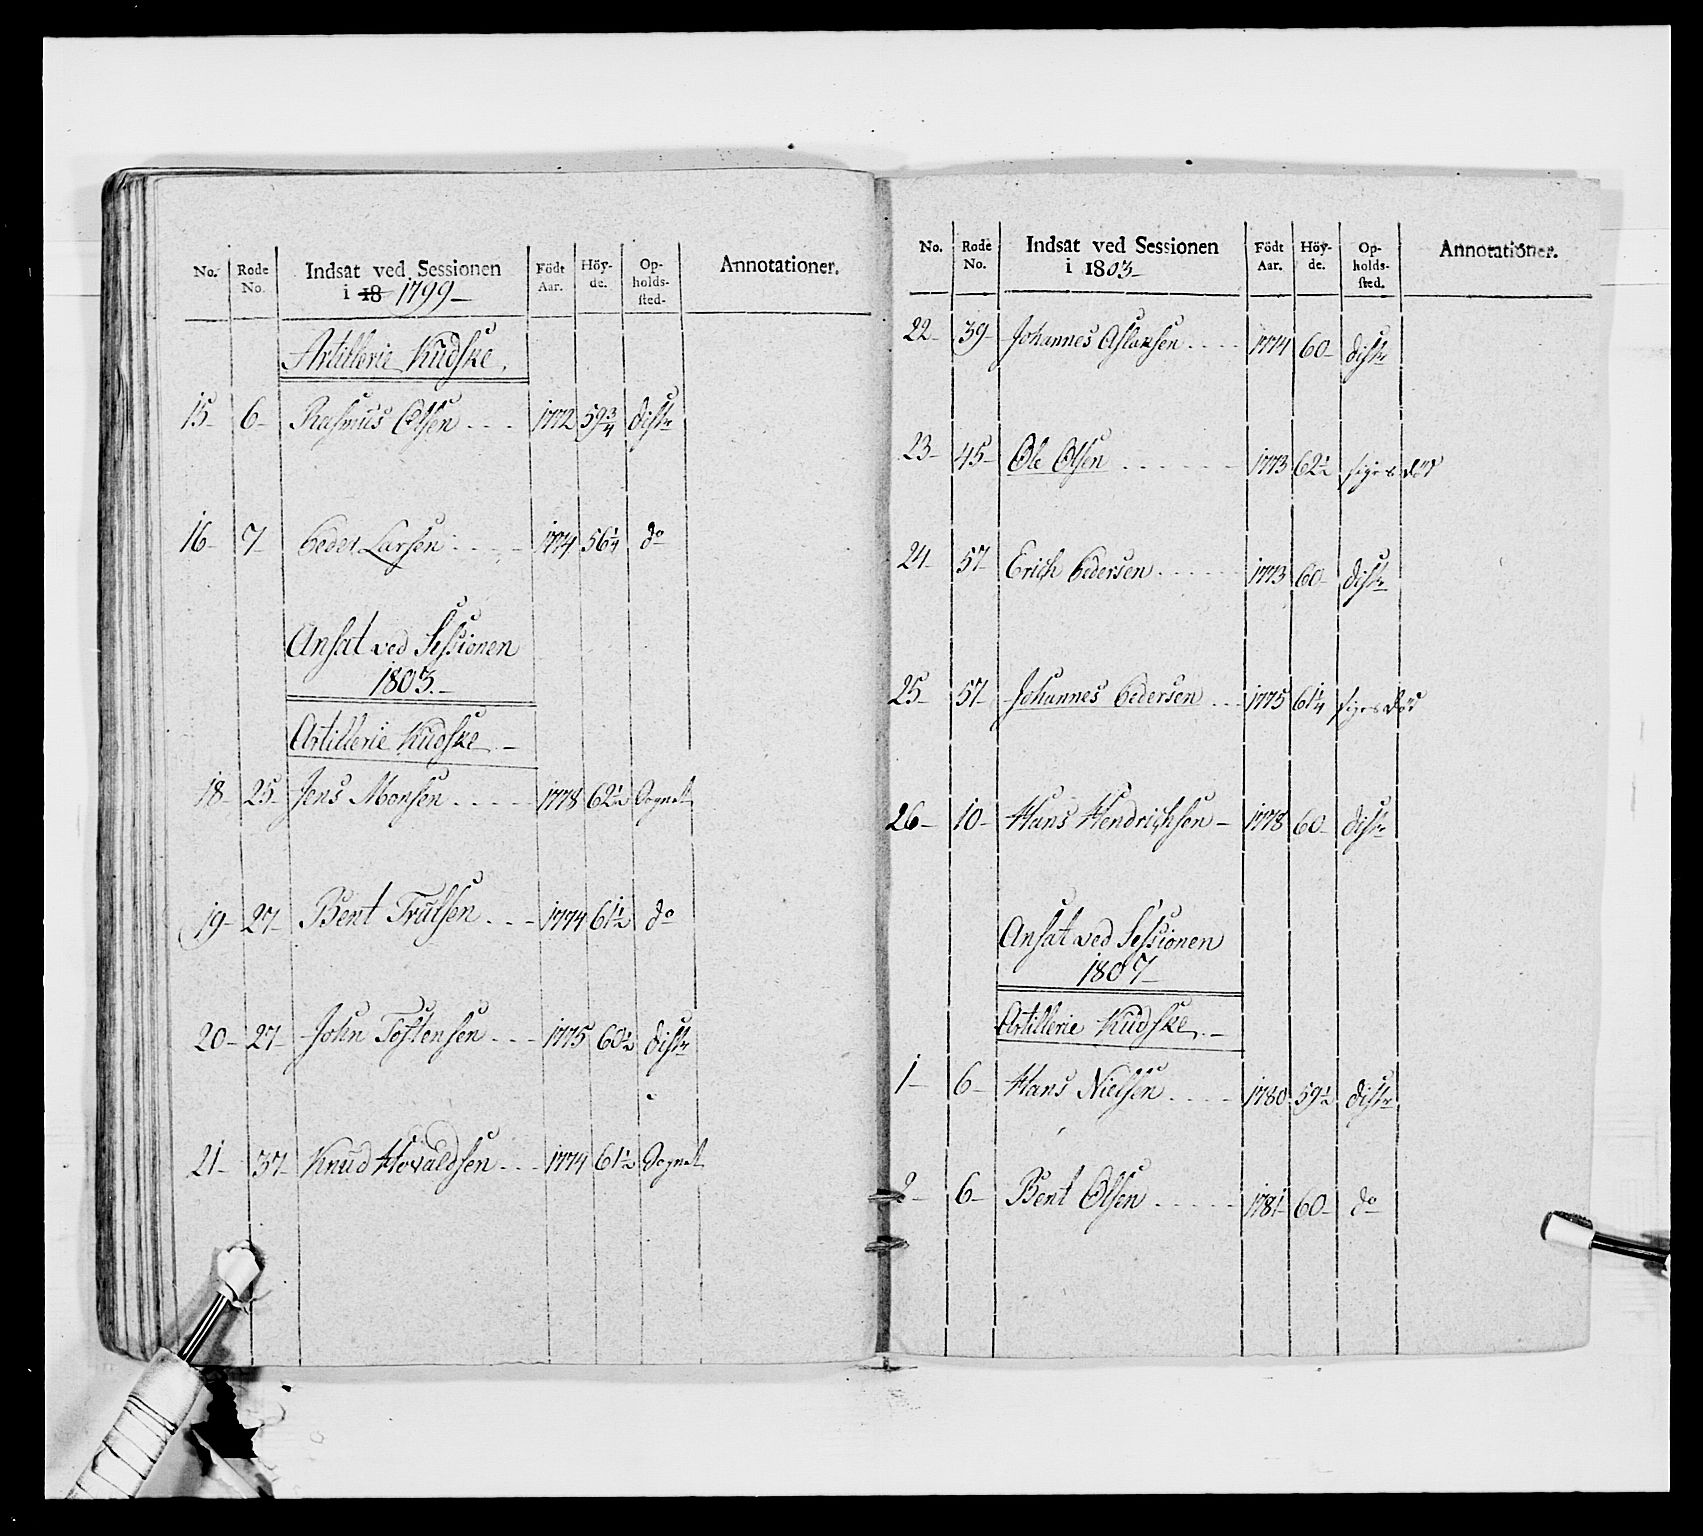 No. Rode No. Indsat ved Sessionen i 18 1799 Födt Aar. Höyde. Opholds-sted. Annotationer.
Artillerie Kudske.
15 6 Rasmus Olsen 1772 59¾ distr
16 7 Peder Larsen 1774 56¼ do
Ansat ved Sessionen
1803.
Artillerie Kudske
18 25 Jens Monsen 1778 62½ Sognet
19 27 Bent Trulsen 1774 61½ do
20 27 John Tostensen 1775 60½ distr
21 37 Knud Hovaldsen 1774 61½ Sognet
No. Rode No. Indsat ved Sessionen i 1803 Födt Aar. Höyde. Opholds-sted. Annotationer.
22 39 Johannes Aslaksen 1774 60 distr
23 45 Ole Olsen 1773 62½ siges död
24 57 Erich Pedersen 1773 60 distr
25 57 Johannes Pedersen 1775 61¼ siges död
26 10 Hans Hendrichsen 1778 60 distr
Ansat ved Sessionen
1807
Artillerie Kudske
1 6 Hans Nielsen 1780 59½ distr
2 6 Bent Olsen 1781 60 do